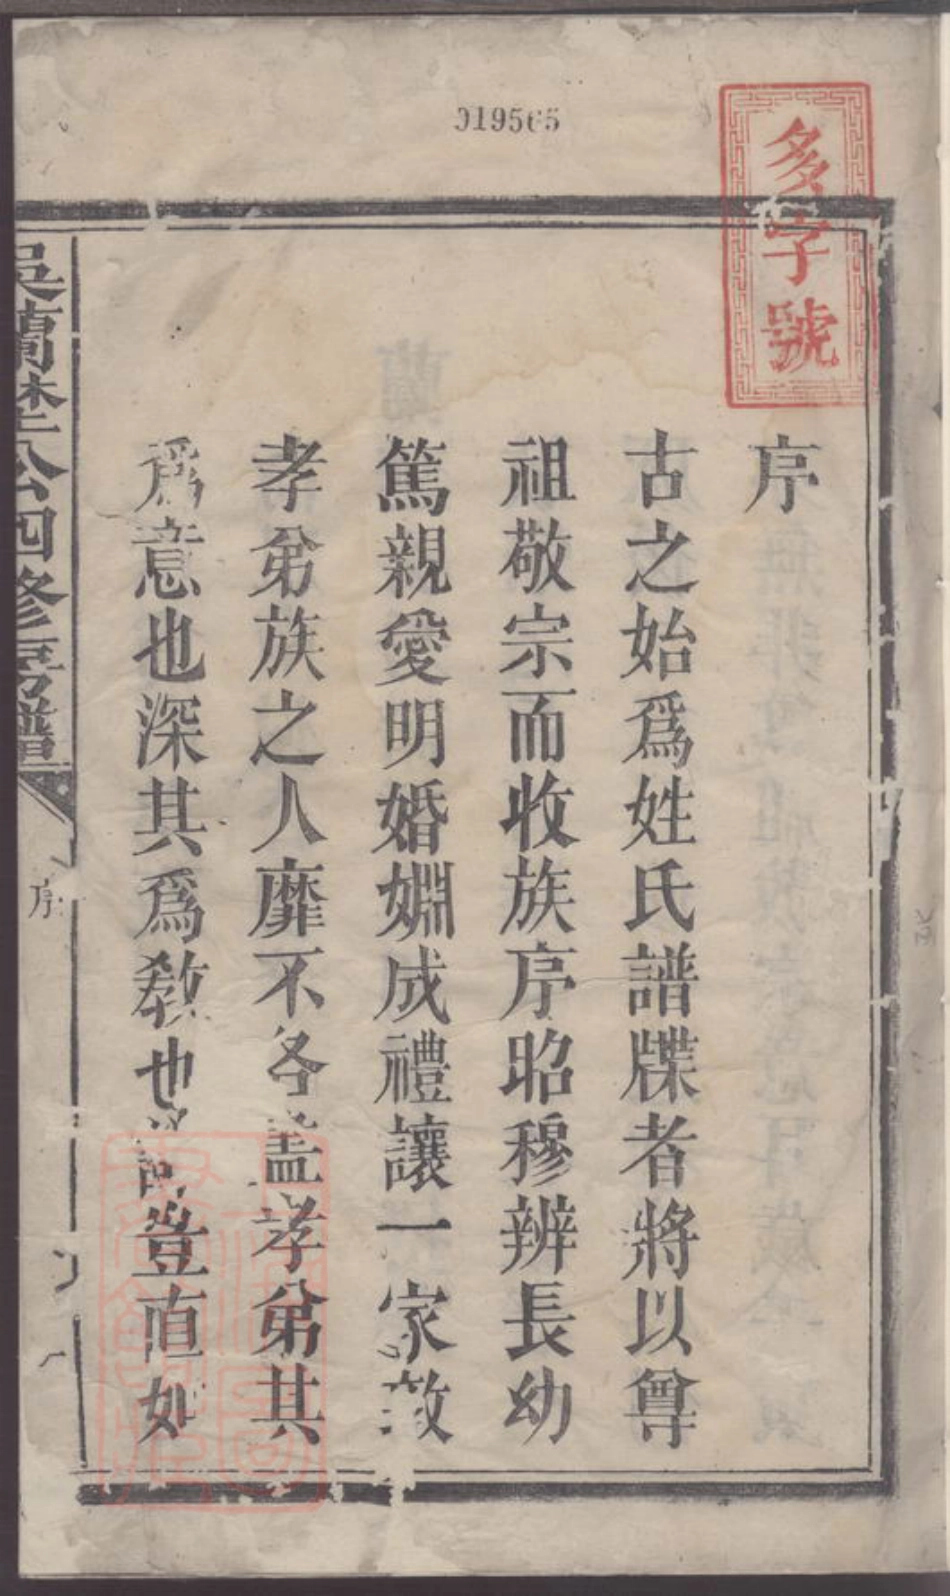 019565
多字號
序
古之始爲姓氏譜牒者將以尊
祖敬宗而收族序昭穆辨長幼
篤親愛明婚婣成禮讓一家敦
孝弟族之人靡不各盡孝弟其
爲意也深其爲教也豈直如
吳蘭埜公四修宗譜
序